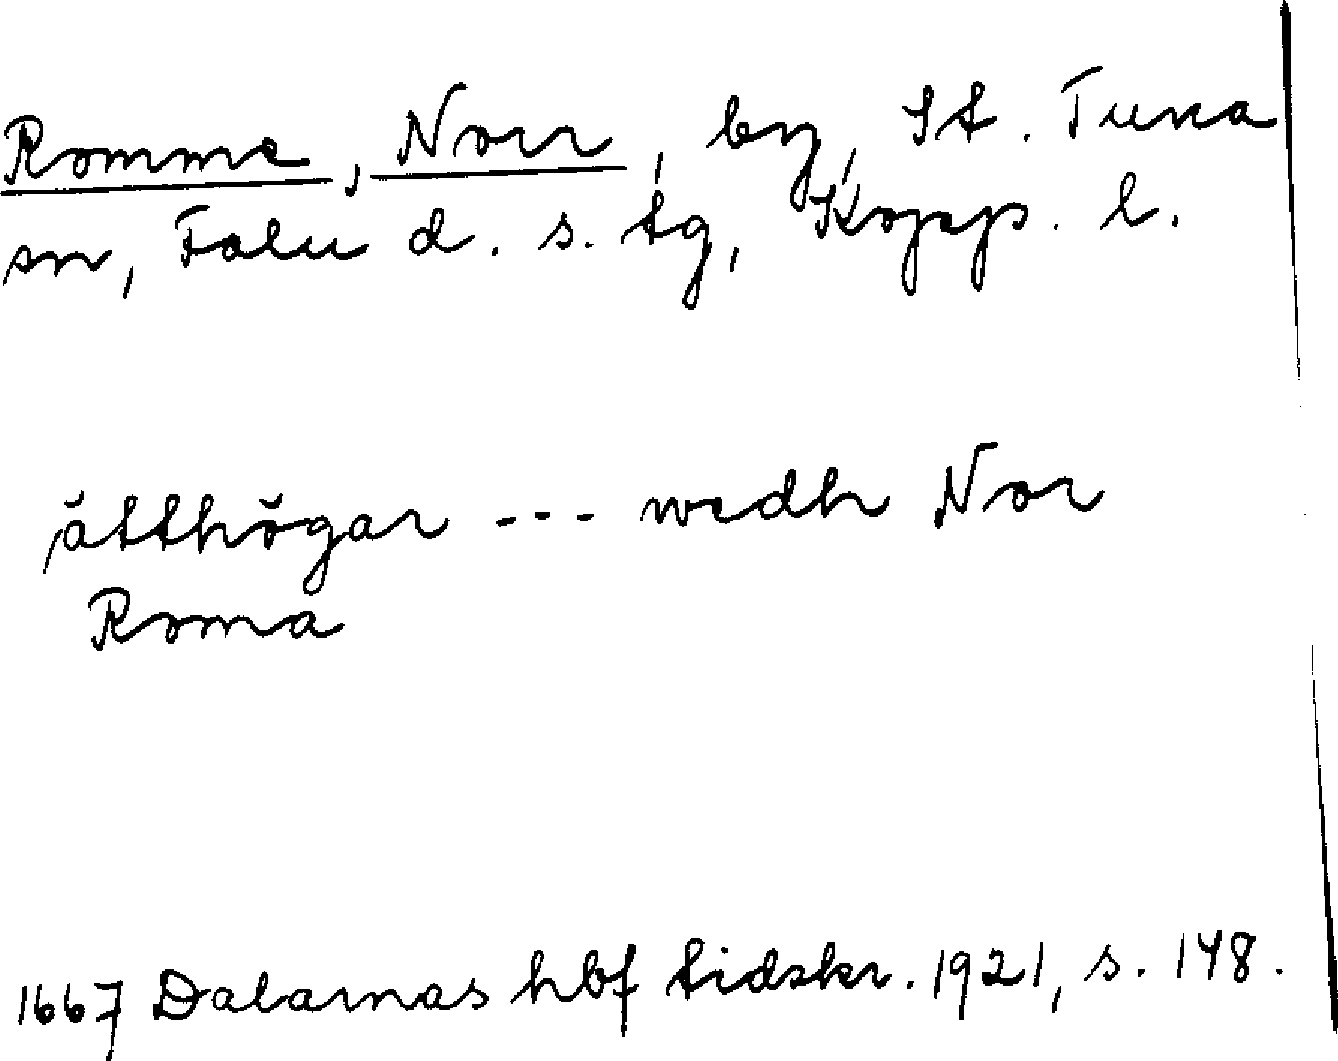 Romme, Norr, by, St. Tuna
sn, Falu d. s. tg, Kopp. l.
ätthögar --- wedh Nor
Roma
1667 Dalarnas hbf tidskr. 1921, s. 148.